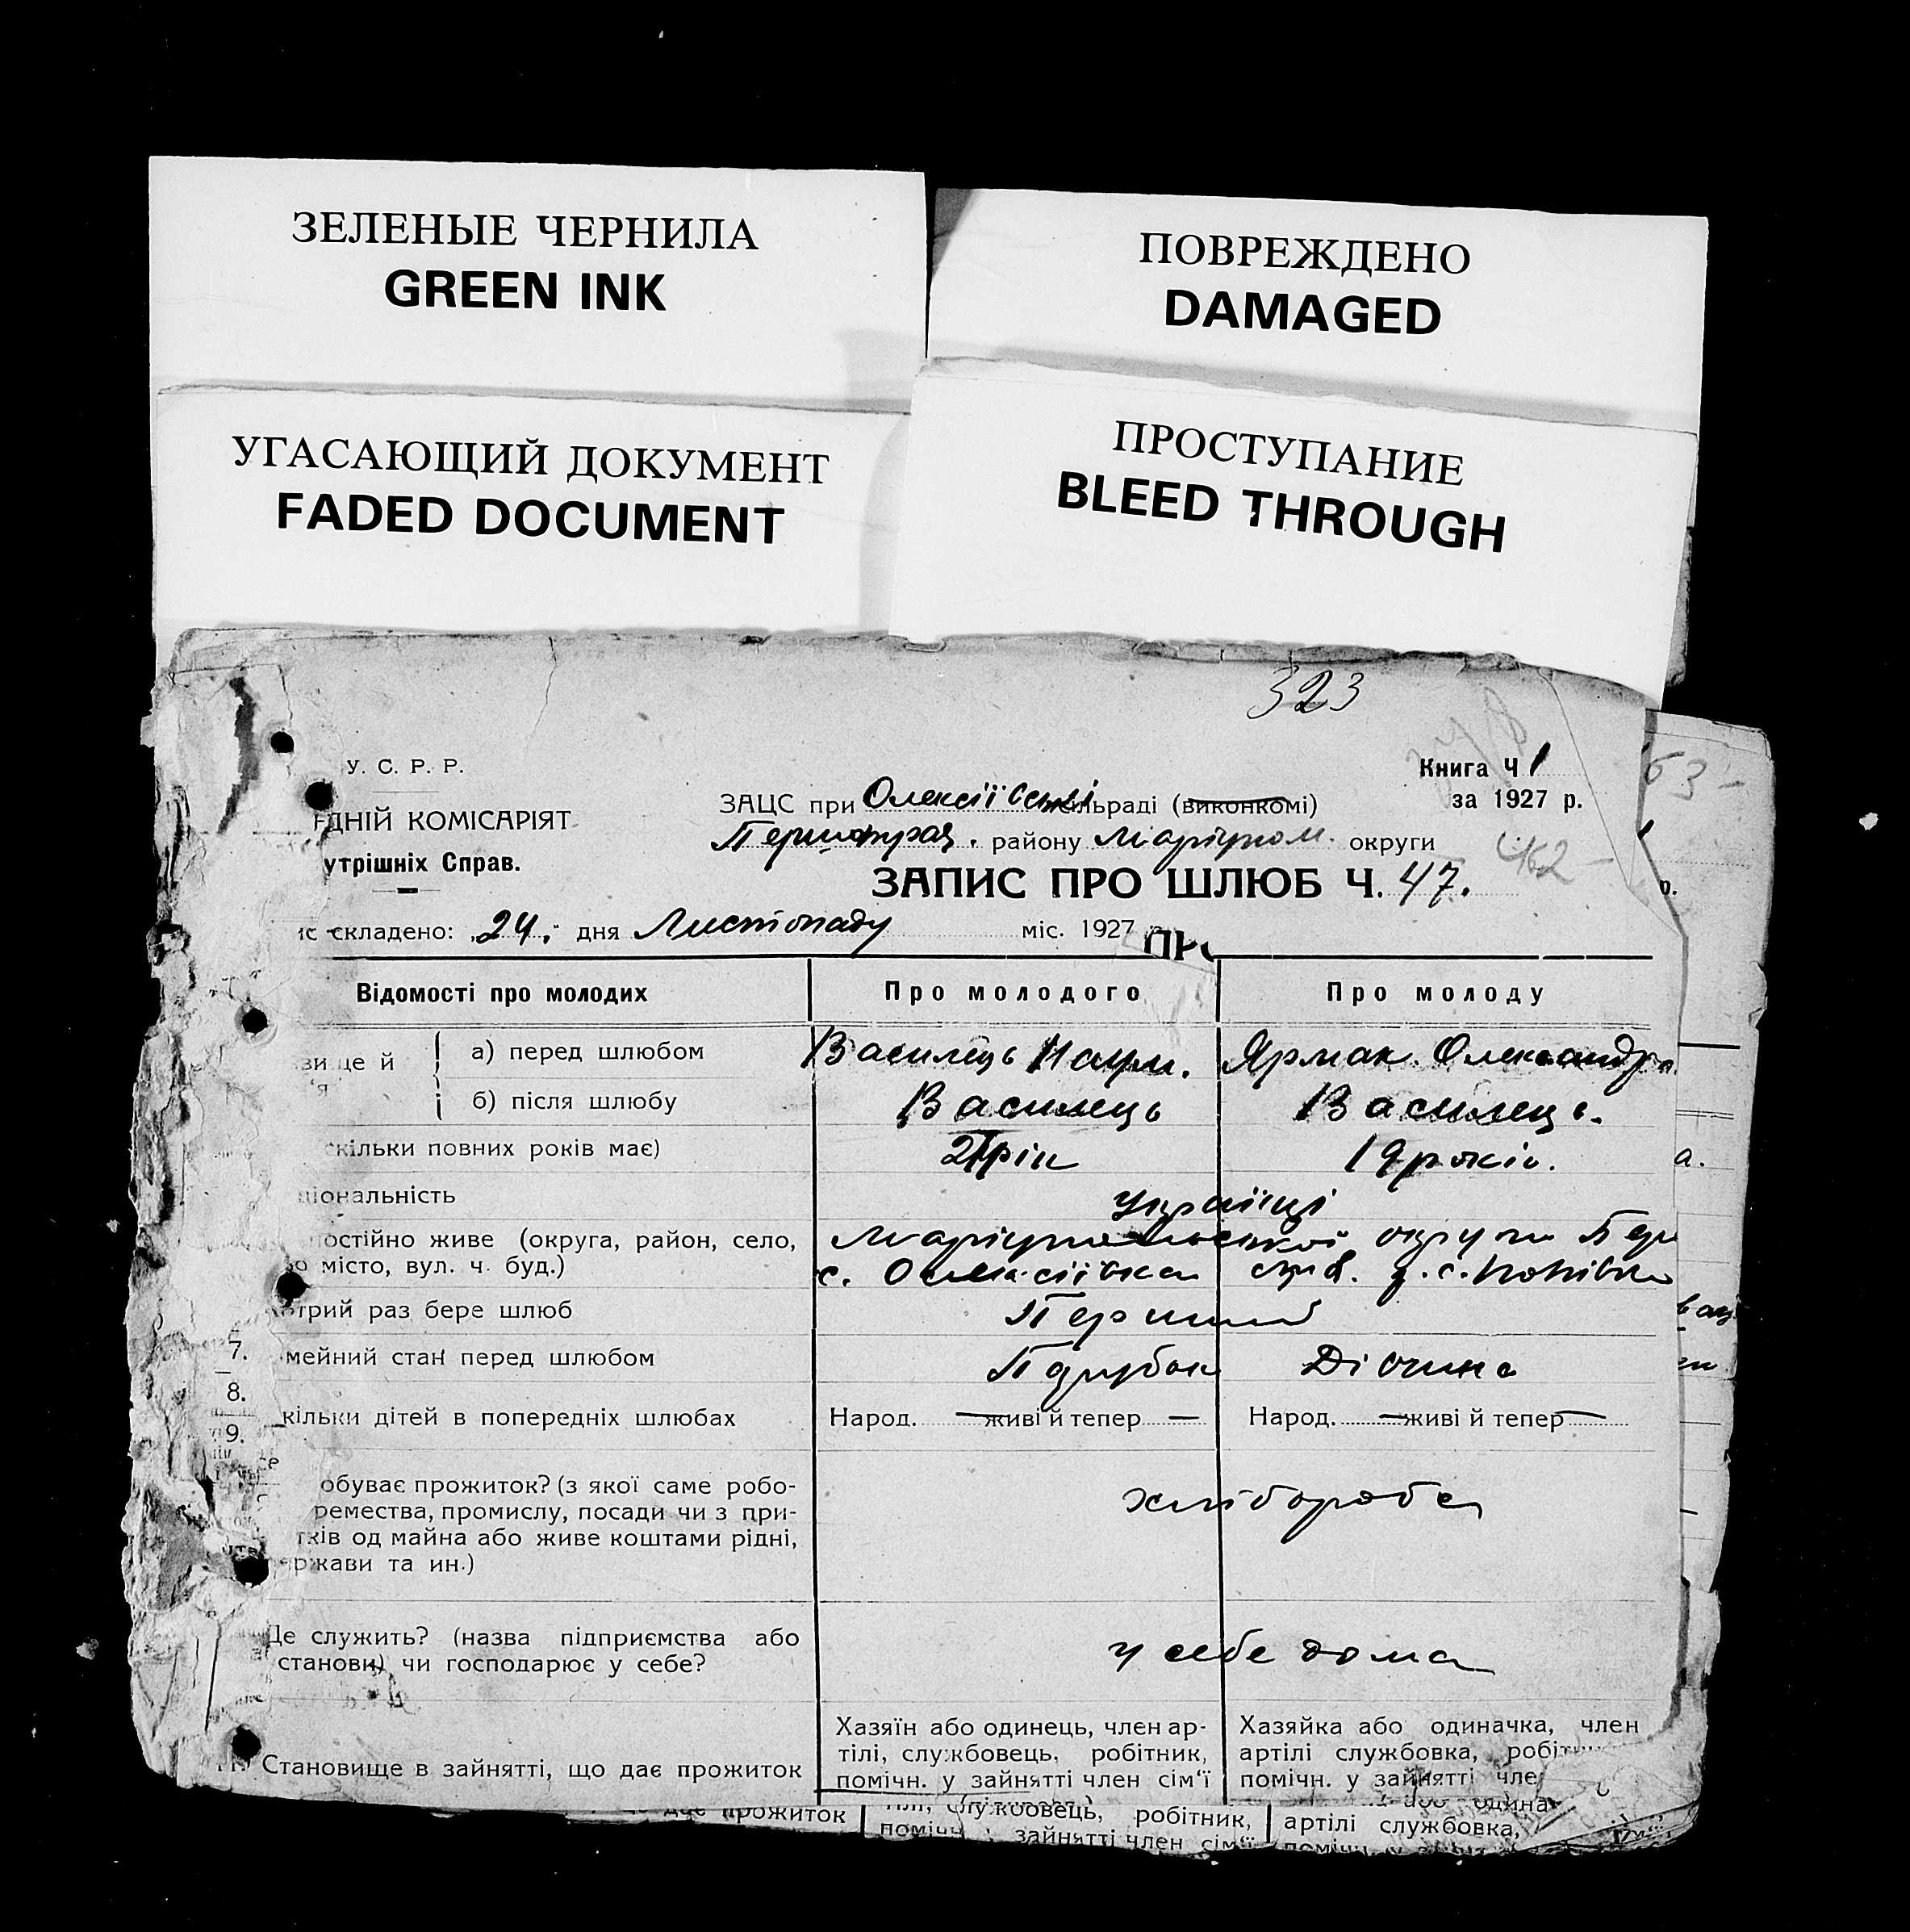 ЗЕЛЕНЫЕ ЧЕРНИЛА
GREEN INK
ПОВРЕЖДЕНО
DAMAGED
УГАСАЮЩИЙ ДОКУМЕНТ
FADED DOCUMENT
ПРОСТУПАНИЕ
BLEED THROUGH
323
У. С. Р. Р.
ДНІЙ КОМІСАРІЯТ
утрішніх Справ.
Книга Ч 1
за 1927 р.
ЗАЦС при Олексіївській сільраді (виконкомі)
району Маріупол. округи
ЗАПИС ПРО ШЛЮБ Ч. 47.
462
63
ис складено: „24." дня Листопаду міс. 1927 р.
Відомості про молодих
Про молодого
Про молоду
зище й
а) перед шлюбом
Василець Наум.
Ярмак Олександра
'я
б) після шлюбу
Василець
Василець.
скільки повних років має)
21 рік
19 років.
ціональність
Українці
постійно живе (округа, район, село,
о місто, вул. ч. буд.)
Маріупольської округи Пер
с. Олексіївка
отрий раз бере шлюб
Перший
7.
мейний стан перед шлюбом
Парубок
Дівчина
8.
кільки дітей в попередніх шлюбах
Народ. — живі й тепер —
Народ. — живі й тепер —
9.
обуває прожиток? (з якої саме робо-
ремества, промислу, посади чи з при-
тків од майна або живе коштами рідні,
ержави та ин.)
хлібороби
Де служить? (назва підприємства або
станови) чи господарює у себе?
у себе дома
Становище в зайнятті, що дає прожиток
Хазяїн або одинець, член ар-
тілі, службовець, робітник,
помічн. у зайнятті член сім'ї
Хазяйка або одиначка, член
артілі службовка, робітн
помічн. у зайнятті чле
дає прожиток
тілі, службовець, робітник,
помічн. у зайнятті член сім'ї
артілі службовка,